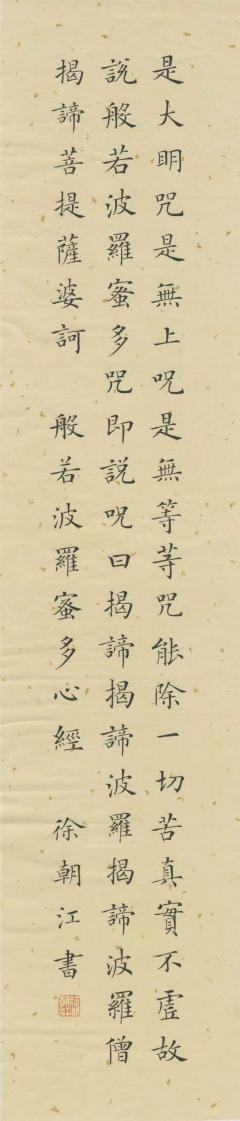 是大明咒是無上呪是無等等咒能除一切苦真實不虛故
說般若波羅蜜多咒即說呪曰揭諦揭諦波羅揭諦波羅僧
揭諦菩提薩婆訶 般若波羅蜜多心經 徐朝江書